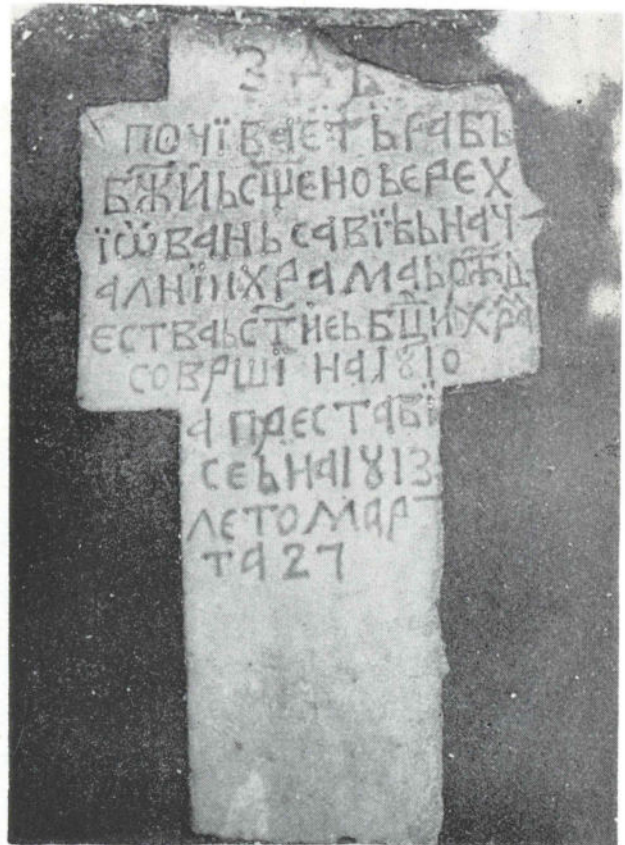 З Д Ѣ
ПОЧЇВАЄТЬ РАБЬ
БЖИЬ СЩЕНОЬЕРЕХ
ЇѾВАНЬ САВЇЋЬ НАЧ
АЛНЇ ХРАМАЬ РЖД
ЕСТВАЬ СТИЕЬ БЦИ ХРА
СОВРШЇ НА 1810
А ПРЕСТАВЇ
СЕЬ НА 1813
ЛЕТО МАР
ТА 27